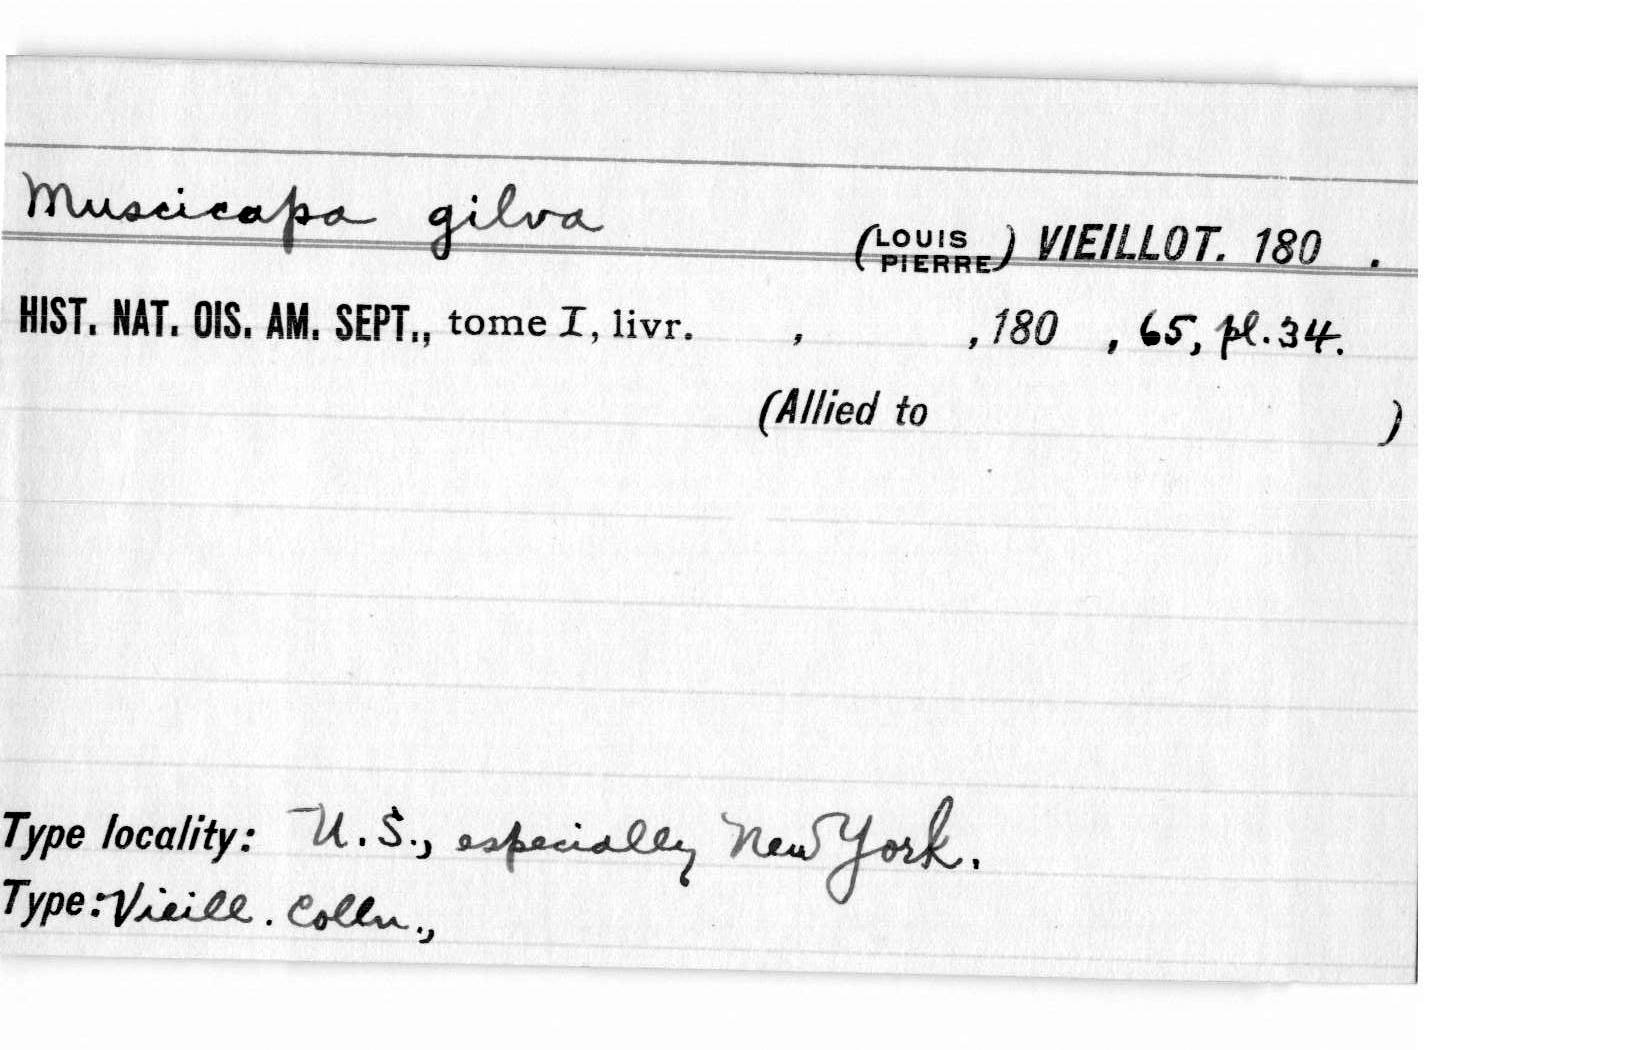 Muscicapa gilva (LOUIS PIERRE) VIEILLOT. 180 .
HIST. NAT. OIS. AM. SEPT., tome I, livr. , , 180 , 65, pl. 34.
(Allied to )
Type locality: U.S., especially New York.
Type: Vieill. Colln.,